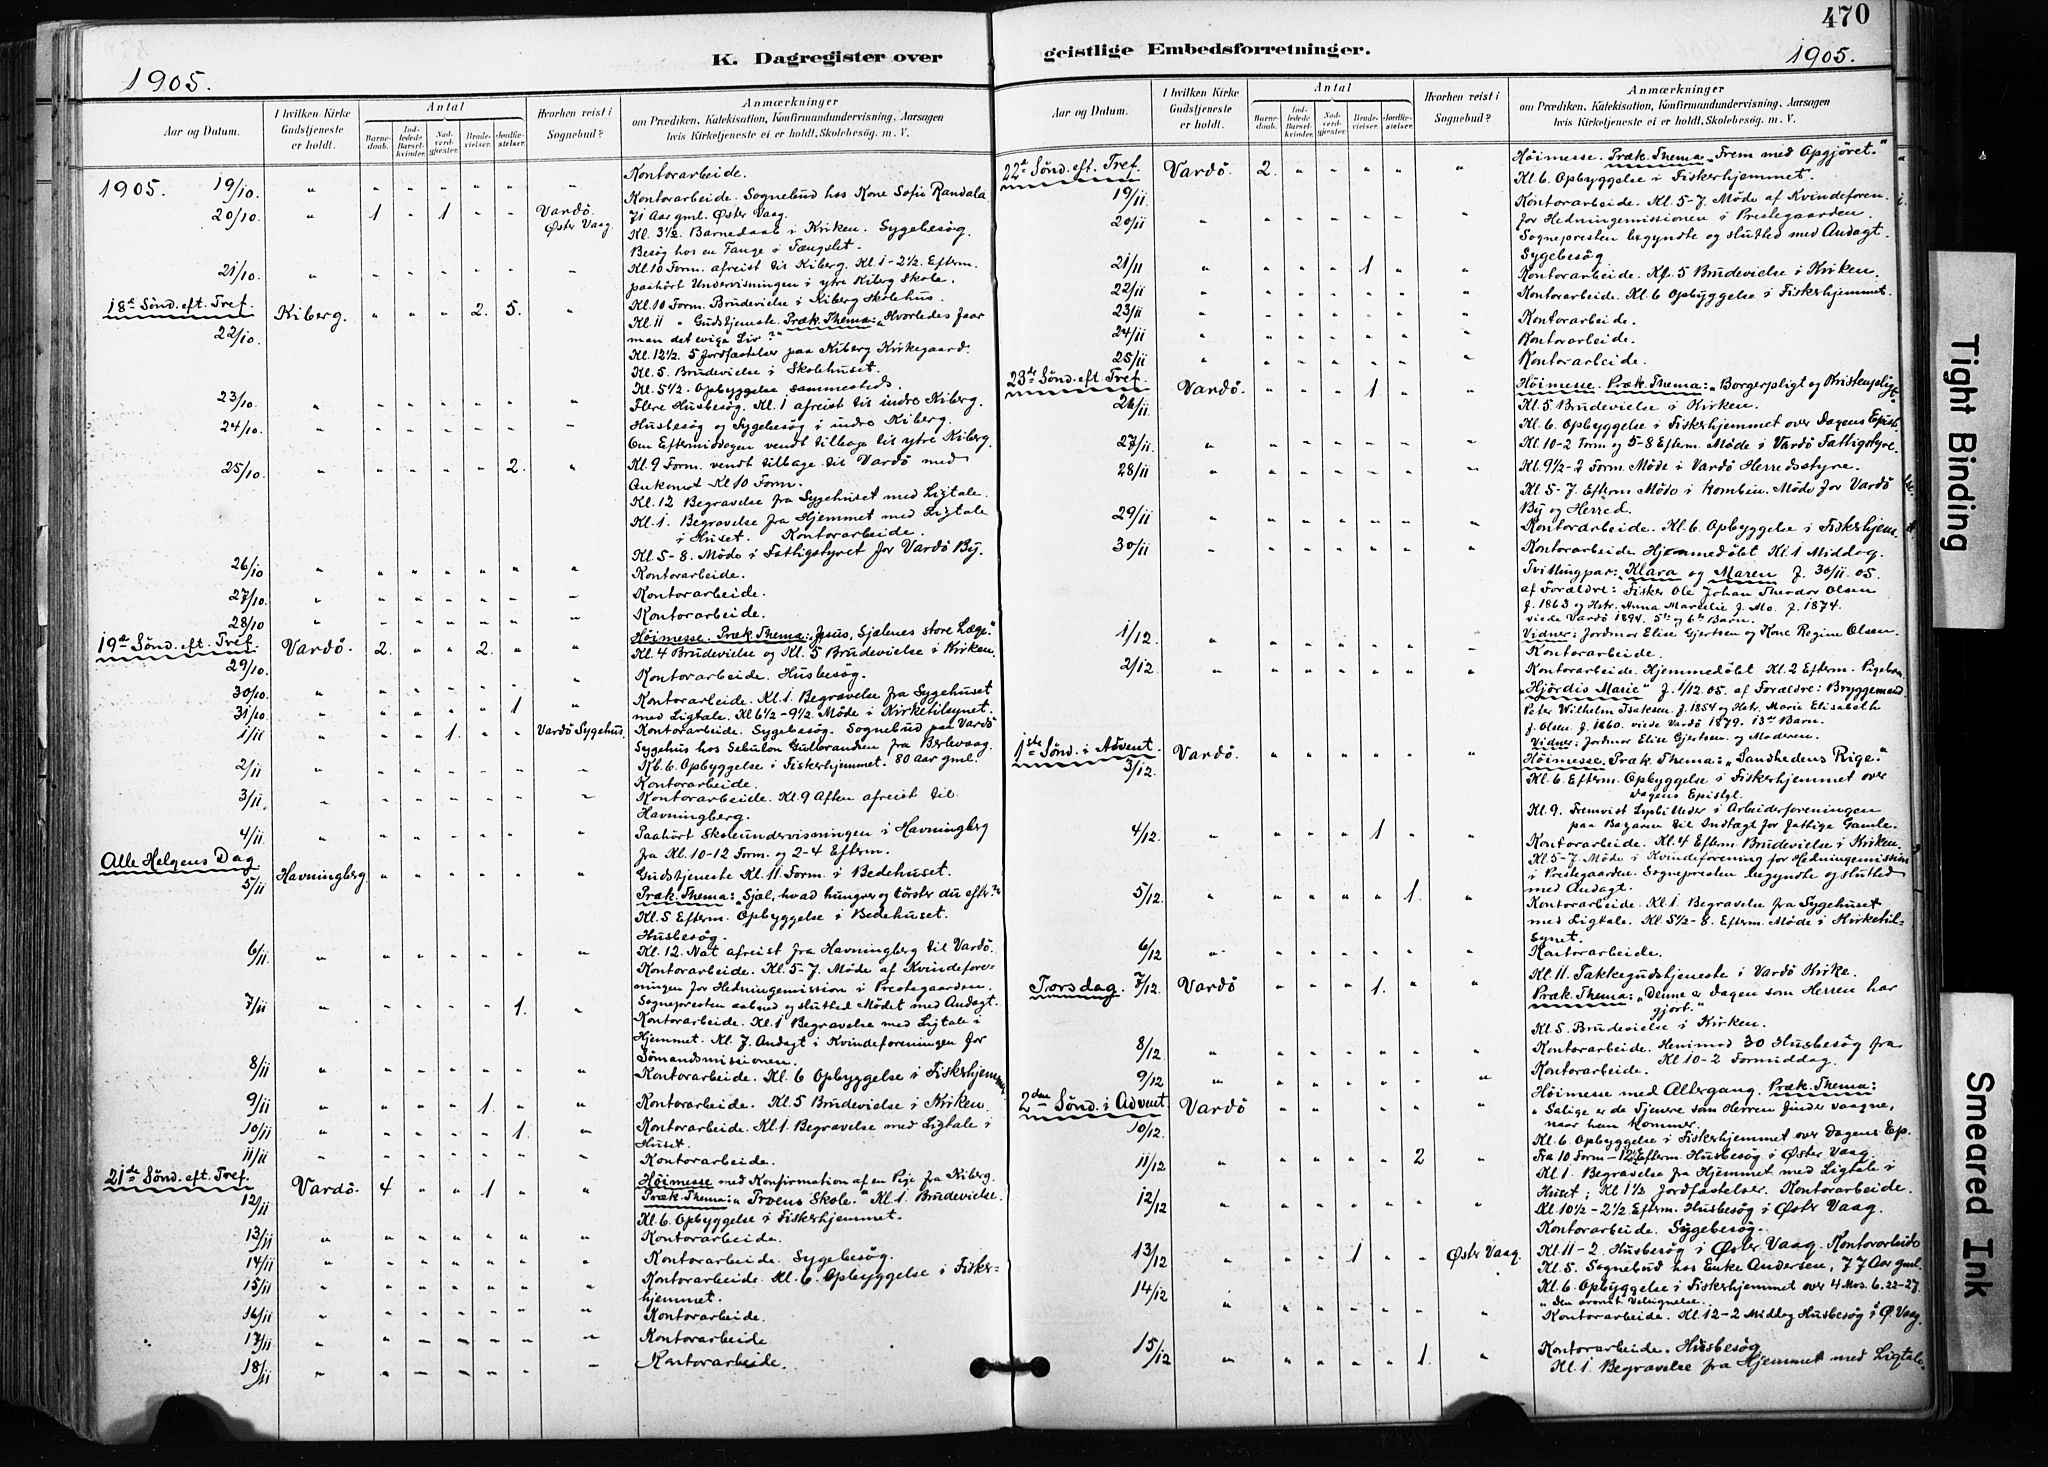 K. Dagregister over
1905.
Aar og Datum.
I hvilken Kirke Gudstjeneste er holdt.
Antal
Barnedaab.
Indledede Barselkvinder.
Nadverdgjæster.
Brudevielser.
Jordfæstelser.
Hvorhen reist i Sognebud?
Anmærkninger
om Prædiken, Katekisation, Konfirmandundervisning, Aarsagen
hvis Kirketjeneste ei er holdt, Skolebesøg. m. V.
1905. 19/10 " " " " " " " Kontorarbeide.
20/10 " 1 " 1 " " Vardö. Øster Vaag. Kontorarbeide. Sognebud hos Kone Sofie Randala
71 Aar gml. Øster Vaag.
Kl. 3½ Barnedaab i Kirken. Sygebesög.
Besög hos en Fange i Fængslet.
21/10 " " " " " " " Kl. 10 Form. afreist til Kiberg. Kl. 1-2½ Efterm.
paahört Undervisningen i ytre Kiberg Skole.
18de Sönd. eft. Tref. 22/10. Kiberg. " " " 2. 5. " Kl. 10 Form. Brudevielse i Kiberg Skolehus.
Kl. 11 " Gudstjeneste. Præk. Thema: "Hvorledes faar
man det evige Liv?"
Kl. 12½. 5 Jordfæstelser paa Kiberg Kirkegaard.
Kl. 5. Brudevielse i Skolehuset.
Kl. 5½. Opbyggelse sammesteds.
23/10 " " " " " " " Flere Husbesög. Kl. 1 afreist til indre Kiberg.
24/10. " " " " " " " Husbesög og Sygebesög i indre Kiberg.
Om Eftermiddagen vendt tilbage til ytre Kiberg.
25/10 " " " " " 2. " Kl. 9 Form. vendt tilbage til Vardö med
Ankomst Kl 10 Form.
Kl. 12 Begravelse fra Sygehuset med Ligtale.
Kl. 1. Begravelse fra Hjemmet med Ligtale
i Huset. Kontorarbeide.
Kl. 5-8. Möde i Fattigstyret for Vardö By.
26/10 " " " " " " " Kontorarbeide.
27/10. " " " " " " " Kontorarbeide.
28/10 " " " " " " " Kontorarbeide.
19de Sönd. eft. Tref. 29/10. Vardö. 2. " " 2. " " Höimesse. Præk. Thema: "Jesus, Sjælenes store Læge."
Kl. 4 Brudevielse og Kl. 5 Brudevielse i Kirken.
30/10. " " " " " " " Kontorarbeide. Husbesög.
31/10. " " " " " 1 " Kontorarbeide. Kl. 1. Begravelse fra Sygehuset
med Ligtale. Kl 6½-9½ Möde i Kirketilsynet.
1/11 " " " 1. " " Vardö Sygehus. Kontorarbeide. Sygebesög. Sognebud paa Vardö
Sygehus hos Sebulon Gulbrandsen fra Berlevaag.
80 Aar gml.
2/11 " " " " " " " Kl. 6. Opbyggelse i Fiskerhjemmet.
Kontorarbeide.
3/11. " " " " " " " Kontorarbeide. Kl. 9 Aften afreist til
Havningberg.
4/11 " " " " " " " Paahört Skoleundervisningen i Havningberg
fra Kl. 10-12 Form. og 2-4 Efterm.
Alle Helgens Dag. 5/11 Havningberg. " " " " " " Gudstjeneste Kl. 11. Form. i Bedehuset.
Præk. Thema: "Sjæl, hvad hungrer og törster du efter?"
Kl. 5 Efterm. Opbyggelse i Bedehuset.
Husbesög.
6/11. " " " " " " " Kl. 12. Nat afreist fra Havningberg til Vardö.
Kontorarbeide. Kl. 5-7. Möde af Kvindefore-
ningen for Hedningemission i Prestegaarden.
Sognepresten aabned og sluttet Mödet med Andagt.
7/11 " " " " " 1. " Kontorarbeide. Kl. 1 Begravelse med Ligtale i
Hjemmet. Kl. 7. Andagt i Kvindeforeningen for
Sömandsmissionen.
8/11 " " " " " " " Kontorarbeide. Kl. 6 Opbyggelse i Fiskerhjemmet.
9/11 " " " " 1. " " Kontorarbeide. Kl. 5 Brudevielse i Kirken.
10/11 " " " " " 1. " Kontorarbeide. Kl. 1. Begravelse med Ligtale i
Huset.
11/11 " " " " " " " Kontorarbeide.
21de Sönd. eft. Tref. 12/11 Vardö. 4 " " 1 " " Höimesse med Konfirmation af en Pige fra Kiberg.
Præk. Thema: "Troens Skole." Kl. 1. Brudevielse.
Kl. 6. Opbyggelse i Fiskerhjemmet.
13/11 " " " " " " " Kontorarbeide.
14/11 " " " " " " " Kontorarbeide. Sygebesög.
15/11 " " " " " " " Kontorarbeide. Kl. 6. Opbyggelse i Fisker-
hjemmet.
16/11 " " " " " " " Kontorarbeide.
17/11 " " " " " " " Kontorarbeide
18/11 " " " " " " " Kontorarbeide.
470
geistlige Embedsforretninger.
1905.
Aar og Datum.
I hvilken Kirke Gudstjeneste er holdt.
Antal
Barnedaab.
Indledede Barselkvinder.
Nadverdgjæster.
Brudevielser.
Jordfæstelser.
Hvorhen reist i Sognebud?
Anmærkninger
om Prædiken, Katekisation, Konfirmandundervisning, Aarsagen
hvis Kirketjeneste ei er holdt, Skolebesøg m. V.
22de Sönd. eft. Tref. 19/11. Vardö. 2. " " " " " Höimesse. Præk. Thema: "Frem med Opgjöret."
Kl. 6. Opbyggelse i Fiskerhjemmet.
20/11 " " " " " " " Kontorarbeide. Kl. 5-7. Möde af Kvindeforen.
for Hedningemissionen i Prestegaarden.
Sognepresten begyndte og slutted med Andagt.
Sygebesög.
21/11 " " " " 1 " " Kontorarbeide. Kl. 5 Brudevielse i Kirken.
22/11 " " " " " " " Kontorarbeide. Kl. 6 Opbyggelse i Fiskerhjemmet.
23/11 " " " " " " " Kontorarbeide.
24/11 " " " " " " " Kontorarbeide.
25/11 " " " " " " " Kontorarbeide.
23de Sönd. eft. Tref. 26/11. Vardö. " " " 1 " " Höimesse. Præk. Thema: "Borgerpligt og Kristenpligt"
Kl. 5 Brudevielse i Kirken.
Kl. 6. Opbyggelse i Fiskerhjemmet over Dagens Epist.
27/11 " " " " " " " Kl. 10-2 Form og 5-8 Efterm. Möde i Vardö Fattigstyre.
28/11 " " " " " " " Kl. 9½-2 Form. Möde i Vardö Herredsstyre.
Kl. 5-7. Efterm Möde i kombin. Möde for Vardö
By og Herred.
29/11 " " " " " " " Kontorarbeide. Kl. 6. Opbyggelse i Fiskerhjem.
30/11 " " " " " " " Kontorarbeide Hjemmedöbt Kl. 1 Middag.
Tvillingpar: "Klara og Maren f. 30/11. 05.
af Forældre: Fisker Ole Johan Theodor Olsen
f. 1863 og Hstr. Anna Marcelie f. Mo. f. 1874.
viede Vardö 1894. 5te og 6te Barn.
Vidner: Jordmor Elise Gjertsen og Kone Regine Olsen.
1/12 " " " " " " " Kontorarbeide.
2/12 " " " " " " " Kontorarbeide Hjemmedöbt Kl. 2 Efterm. Pigebarn
"Hjördis Marie" f. 1/12. 05. af Forældre: Bryggemand
Peter Wilhelm Isaksen. f. 1854 og Hstr. Marie Elisabeth
f. Olsen f. 1860. viede Vardö 1879. 13de Barn.
Vidner: Jordmor Elise Gjertsen og Moderen.
1ste Sönd. i Advent. 3/12. Vardö. " " " " " " Höimesse. Præk. Thema: "Sandhedens Rige."
Kl. 6. Efterm. Opbyggelse i Fiskerhjemmet over
Dagens Epistel.
Kl. 9. Fremvist Lysbilleder i Arbeiderforeningen
paa Bazaren til Indtægt for fattige Gamle.
4/12. " " " " 1 " " Kontorarbeide. Kl. 4 Efterm Brudevielse i Kirken.
Kl. 5-7. Möde i Kvindeforening for Hedningemission
i Prestegaarden. Sognepresten begyndte og slutted
med Andagt.
5/12. " " " " " 1. " Kontorarbeide. Kl. 1. Begravelse fra Sygehuset
med Ligtale. Kl. 5½-8. Efterm. Möde i Kirketil-
synet.
6/12 " " " " " " " Kontorarbeide.
Torsdag. 7/12. Vardö " " " 1. " " Kl. 11. Takkegudstjeneste i Vardö Kirke.
Præk. Thema: "Denne er Dagen som Herren har
gjort."
Kl. 5. Brudevielse i Kirken.
8/12 " " " " " " " Kontorarbeide. Henimod 30 Husbesög fra
Kl 10-2 Formiddag.
9/12 " " " " " " " Kontorarbeide.
2den Sönd. i Advent 10/12. Vardö " " " " " " Höimesse med Altergang. Præk. Thema:
"Salige er de Tjenere som Herren finder vaagne,
naar han kommer.
Kl. 6. Opbyggelse i Fiskerhjemmet over Dagens Ep.
11/12 " " " " " 2 " Fra 10 Form-12½ Efterm. Husbesög i Öster Vaag.
Kl 1. Begravelse fra Hjemmet med Ligtale i
Huset; Kl 1½ Jordfæstelser. Kontorarbeide.
12/12 " " " " " " " Kl 10½-2½ Efterm. Husbesög i Öster Vaag.
Kontorarbeide. Sygebesög.
13/12 " " " 1 " " Øster Vaag. Kl. 11-2. Husbesög i Øster Vaag. Kontorarbeide
Kl. 5. Sognebud hos Enke Andersen, 77 Aar gml.
Kl. 6. Opbyggelse i Fiskerhjemmet over 4 Mos. 6. 22-27.
"Den aronit. Velsignelse.
14/12 " " " " " " " Kontorarbeide. Kl. 12-2 Middag Husbesög i Ø. Vaag.
15/12 " " " " " 1. " Kontorarbeide. Husbesög.
Kl. 1 Begravelse fra Hjemmet med Ligtale.
Tight Binding
Smeared Ink